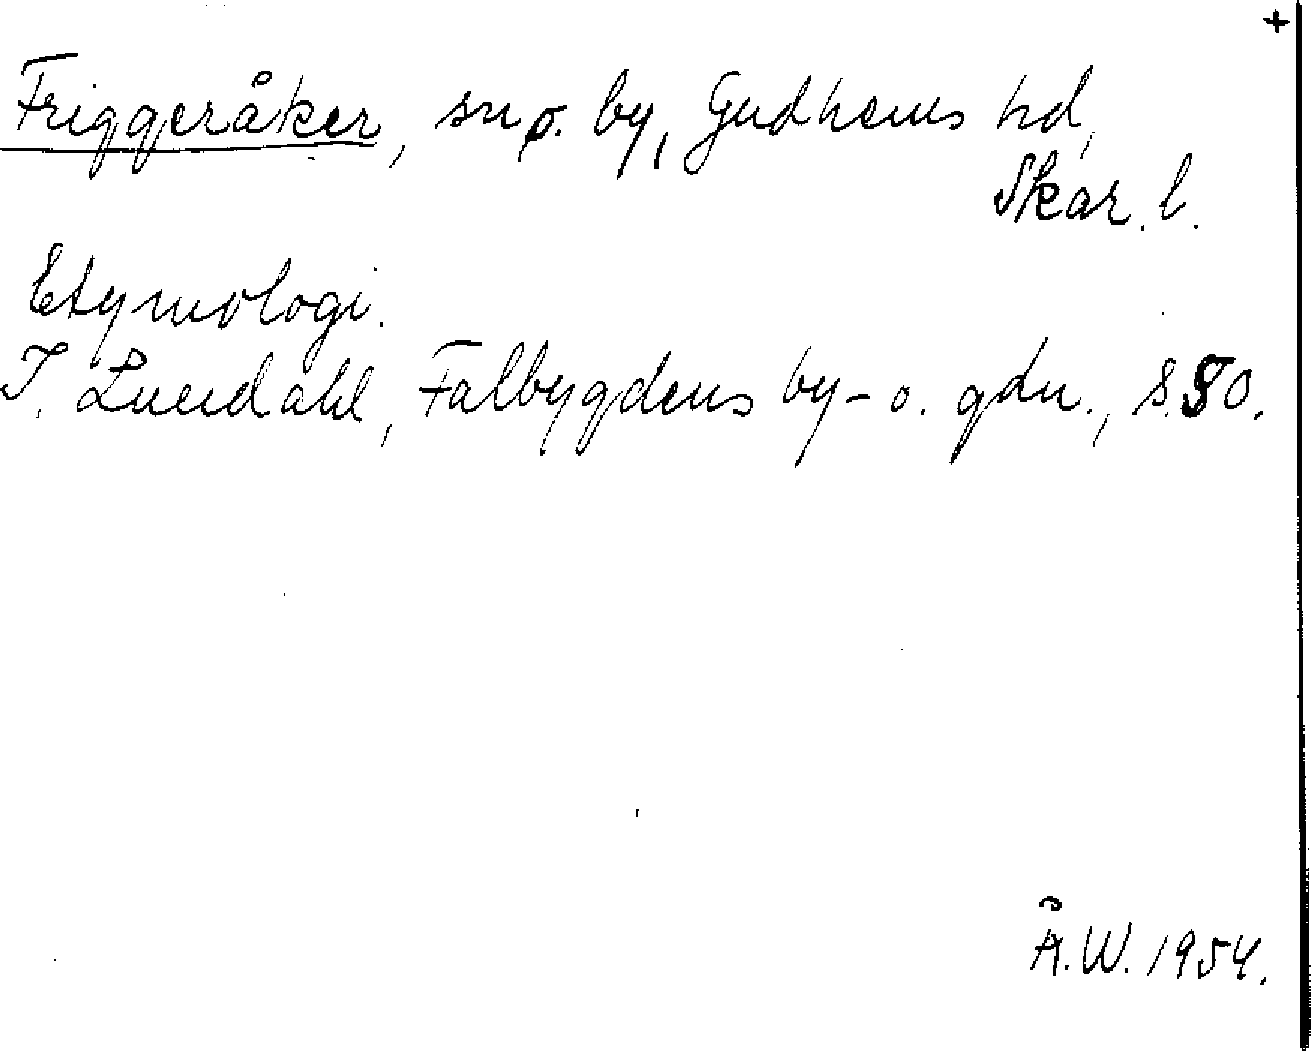 +
Friggeråker, sn o. by, Gudhems hd,
Skar. l.
Etymologi.
I. Lundahl, Falbygdens by- o. gdn., s. 50.
Å.W. 1954.